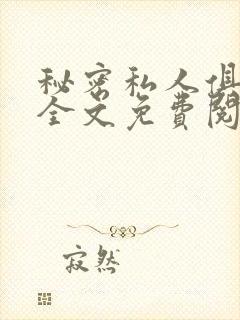 秘密私人俱
全文免費閱
寂然